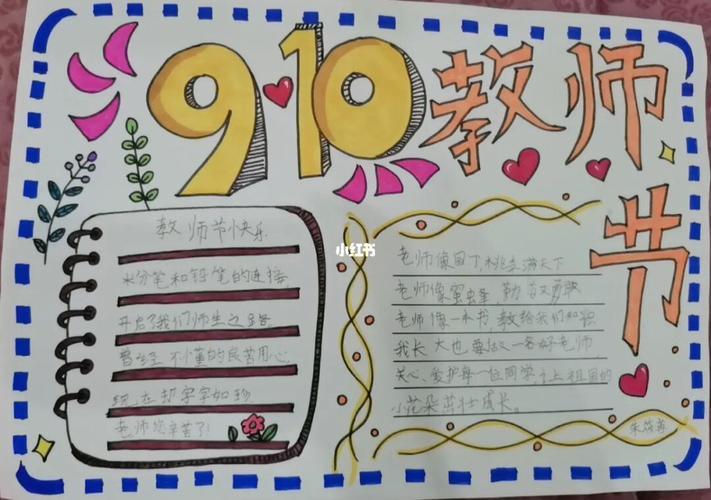 910教师
节
小红书
教师节快乐
粉笔和铅笔的连接
开启了我们师生之路
曾经不懂的良苦用心
现在却字字如珍
老师您辛苦了!
老师像园丁,桃李满天下
老师像蜜蜂,勤
老师像一本书,教给我们知识
我长大也要做一名好老师
关心、爱护每一位同学,让祖国的
小花朵茁壮成长。
朱